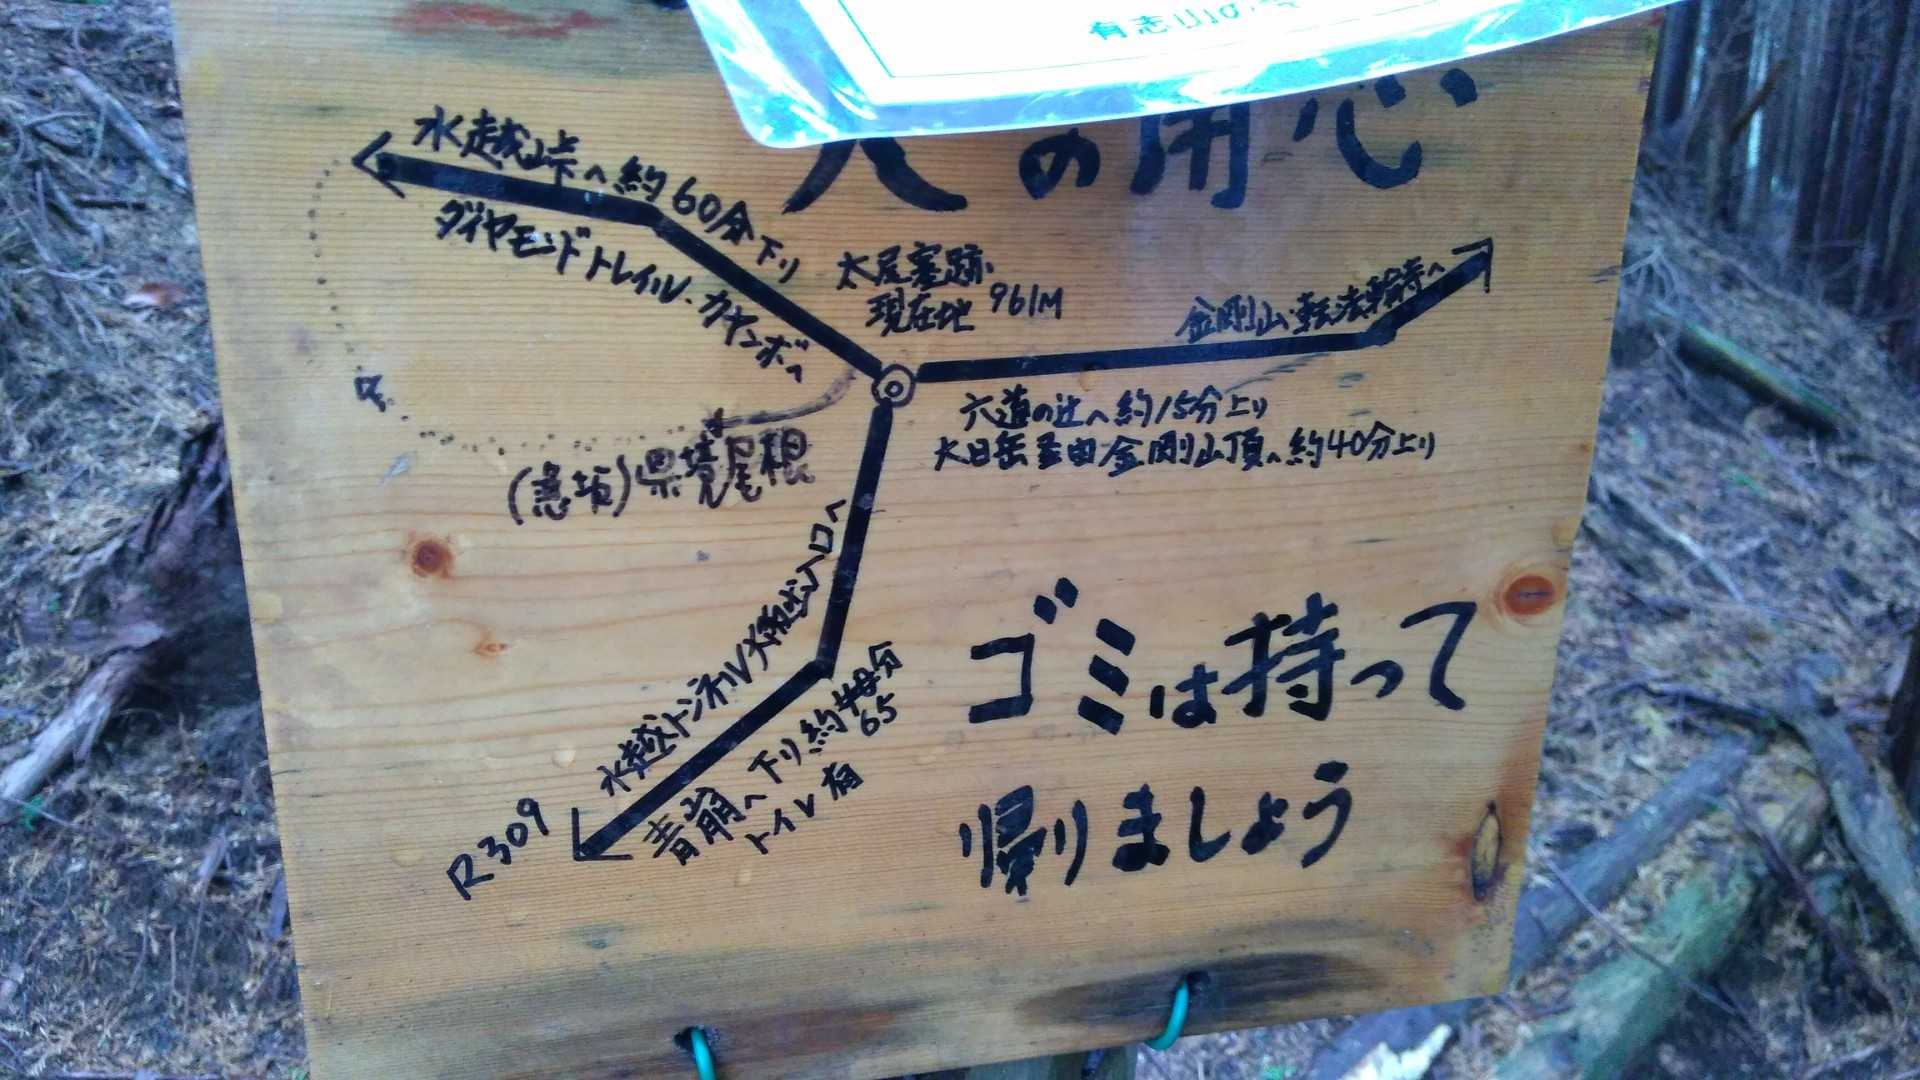 有志山の会
火の用心
水越峠へ約60分下り
ダイヤモンドトレイル・カナンボへ
太尾塞跡
現在地 961M
金剛山・転法輪寺へ
六道の辻へ約15分上り
大日岳経由金剛山頂へ約40分上り
(急坂)県境尾根
水越トンネル大阪出入口へ
青崩へ下り約
分
65
トイレ有
R309
ゴミは持って
帰りましょう